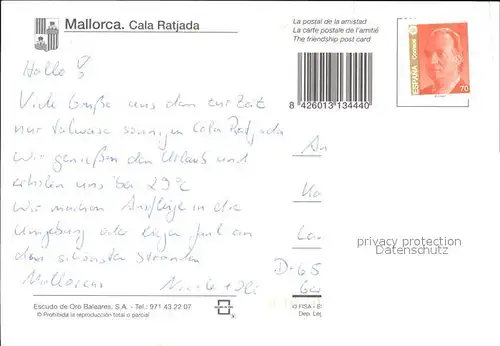 Mallorca. Cala Ratjada
La postal de la amistad
La carte postale de l'amitié
The friendship post card
ESPAÑA
Correos
70
8 426013 134440
Hallo!
Viele Grüße aus dem zur Zeit
nur teilweise sonnigen Cala Ratjada
Wir genießen den Urlaub und
erholen uns bei 29°C
Wir machen Ausflüge in die
Umgebung oder liegen faul an
den schönsten Stränden
Mallorcas
An
D-65
privacy protection
Datenschutz
Escudo de Oro Baleares, S.A. - Tel.: 971 43 22 07
© Prohibida la reproducción total o parcial
© FISA - E
Dep. Leg